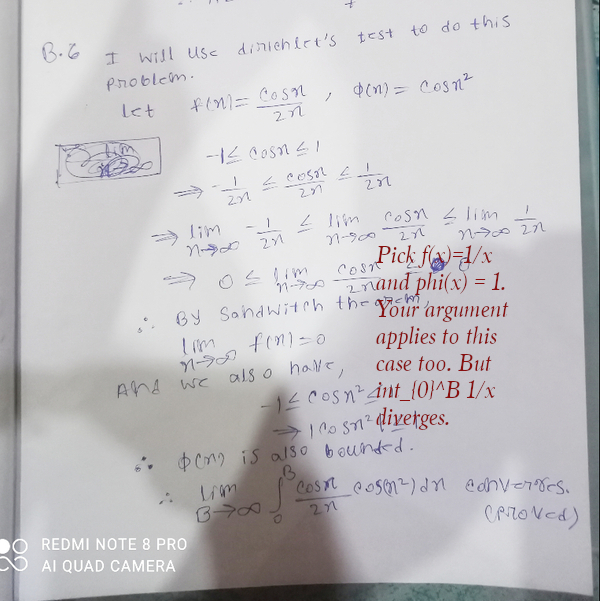 B.6 I will use dirichlet's test to do this
problem.
Let f(x) = cosx/2x , φ(x) = cosx²
-1 ≤ cosx ≤ 1
⇒ -1/2x ≤ cosx/2x ≤ 1/2x
⇒ lim x→∞ -1/2x ≤ lim x→∞ cosx/2x ≤ lim x→∞ 1/2x
⇒ 0 ≤ lim x→∞ cosx/2x ≤ 0
∴ By Sandwitch theorem,
lim x→∞ f(x) = 0
And we also have,
-1 ≤ cosx² ≤ 1
⇒ |cosx²| ≤ 1
∴ φ(x) is also bounded.
∴ lim B→∞ ∫₀ᴮ cosx/2x cos(x²) dx converges.
(proved)
Pick f(x)=1/x
and phi(x) = 1.
Your argument
applies to this
case too. But
int_{0}^B 1/x
diverges.
REDMI NOTE 8 PRO
AI QUAD CAMERA